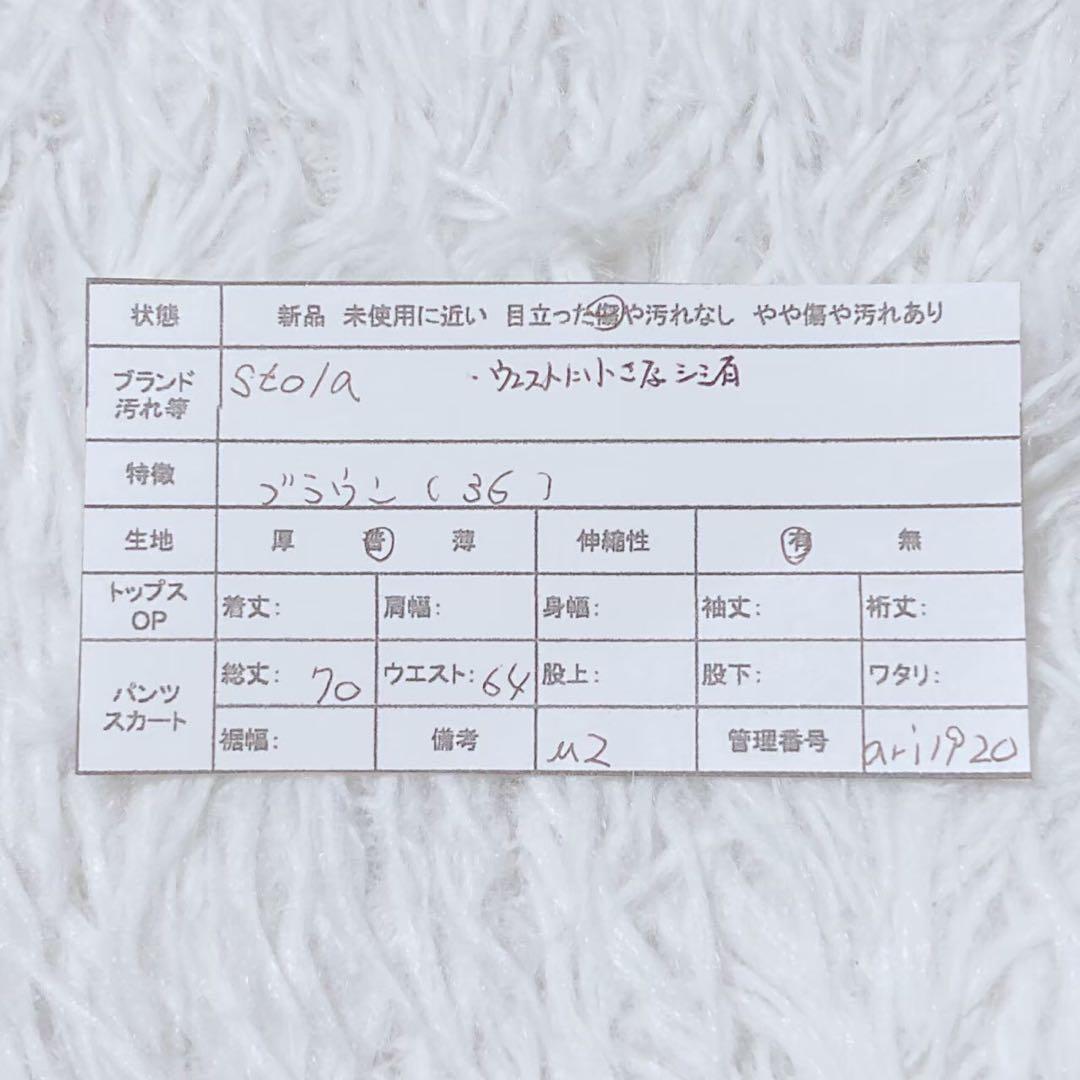 状態 新品 未使用に近い 目立った傷や汚れなし やや傷や汚れあり
ブランド 汚れ等 Stola ・ウエストに小さなシミ有
特徴 ブラウン(36)
生地 厚 普 薄 伸縮性 有 無
トップス OP 着丈: 肩幅: 身幅: 袖丈: 裄丈:
パンツ スカート 総丈: 70 ウエスト: 64 股上: 股下: ワタリ:
裾幅: 備考 u2 管理番号 ari1920